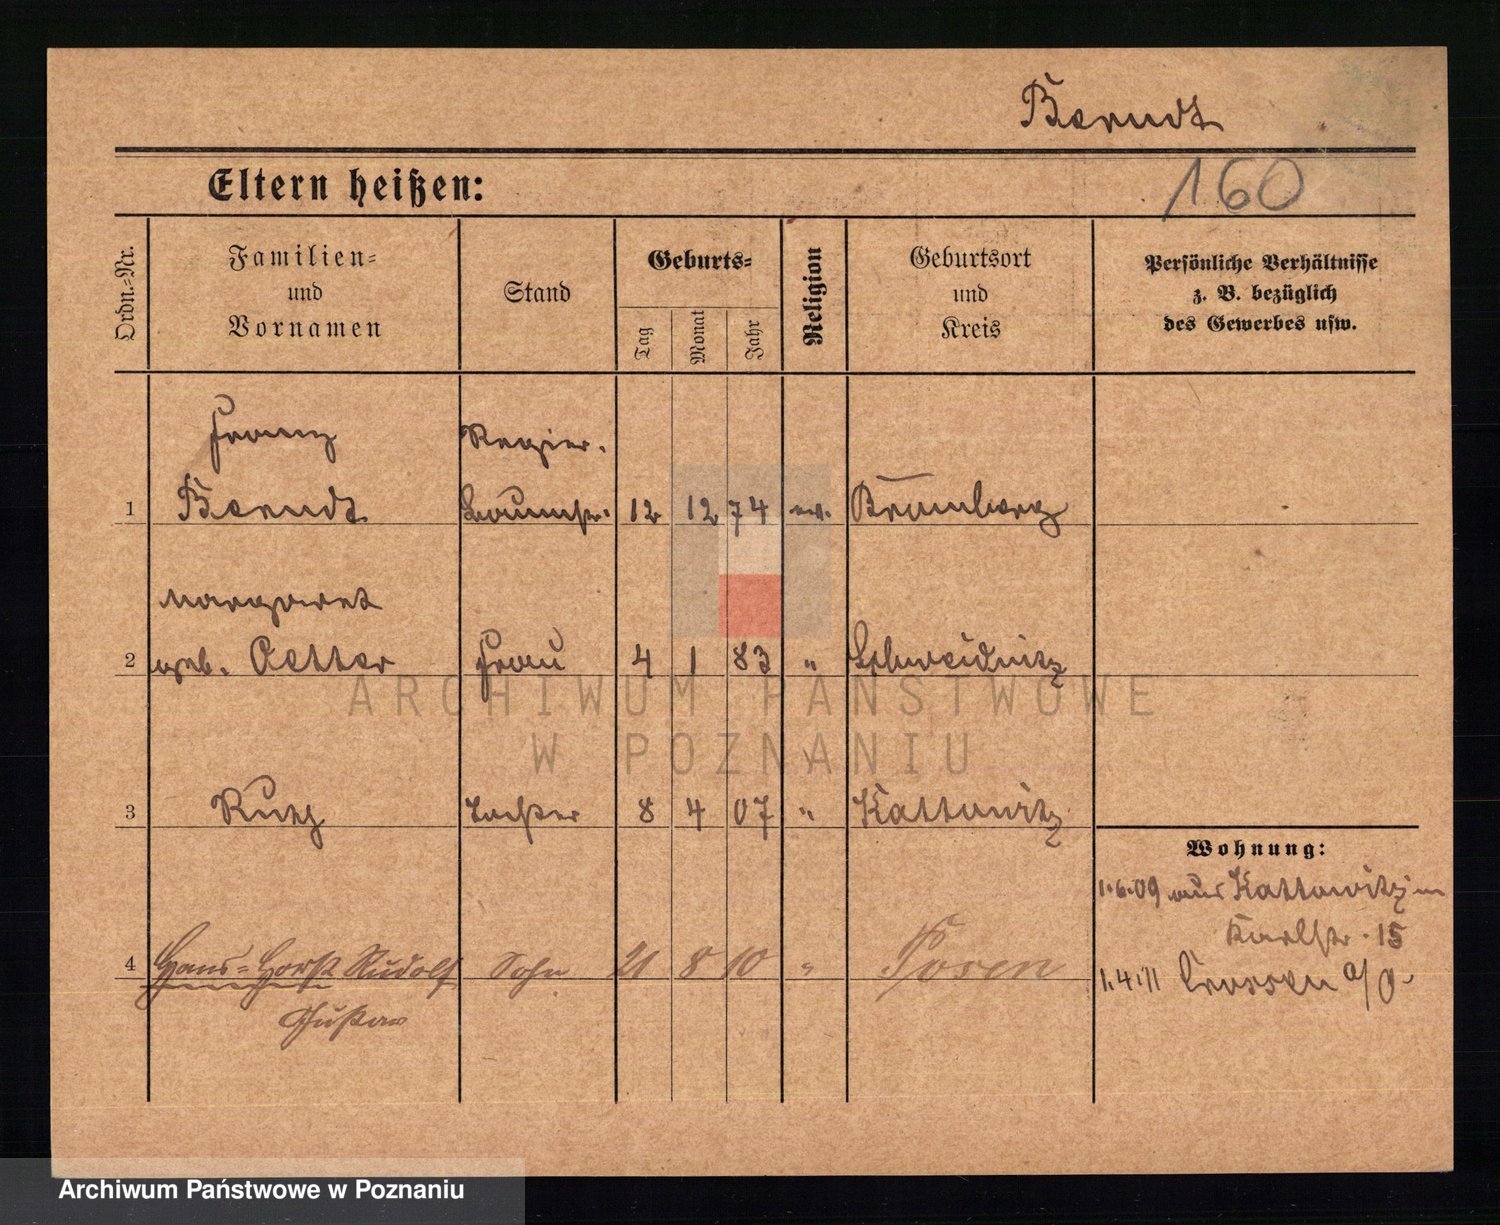 Berndt
160
Eltern heißen:
Ordn.-Nr.
Familien- und Vornamen
Stand
Geburts-
Tag
Monat
Jahr
Religion
Geburtsort und Kreis
Persönliche Verhältnisse
z. B. bezüglich
des Gewerbes usw.
Franz Regier.
1 Berndt baumstr. 12 12 74 ev. Bromberg
Margaret
2 geb. Oetter Frau 4 1 83 " Schweidnitz
3 Ruth Tochter 8 4 07 " Kattowitz
Wohnung:
1.6.09 aus Kattowitz in
Karlstr. 15
4 Hans-Horst Rudolf Sohn 21 8 10 " Posen
1.4.11 Crossen a/O.
Gustav
ARCHIWUM PAŃSTWOWE
W POZNANIU
Archiwum Państwowe w Poznaniu